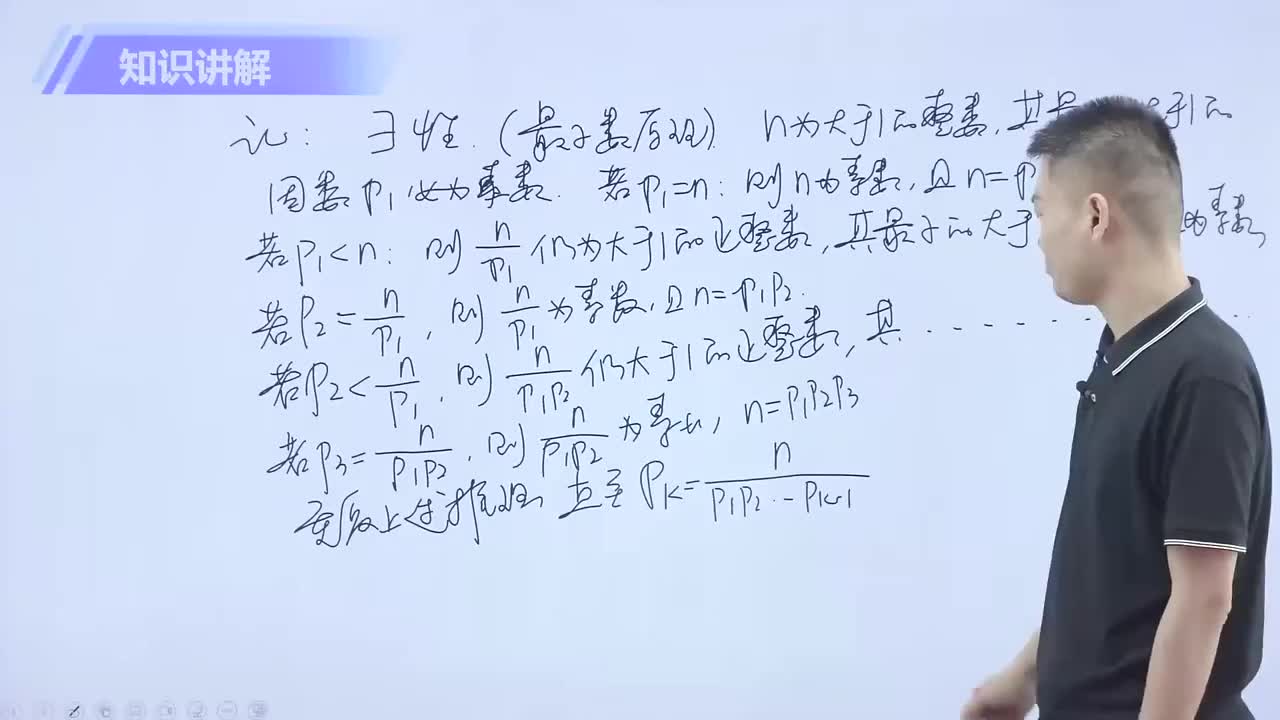 知识讲解
证: ∃性. (最小数原理). n为大于1的整数, 其最 大于1的
因数 p₁ 必为素数. 若 p₁=n: 则n为素数, 且 n=p
若 p₁<n: 则 n/p₁ 仍为大于1的正整数, 其最小的大于 为素数
若 p₂ = n/p₁, 则 n/p₁ 为素数, 且 n=p₁p₂.
若 p₂ < n/p₁, 则 n/p₁p₂ 仍大于1的正整数, 其 ........
若 p₃ = n/p₁p₂, 则 n/p₁p₂ 为素数, n=p₁p₂p₃
重复上述推理, 直至 p_k = n/p₁p₂…p_{k-1}